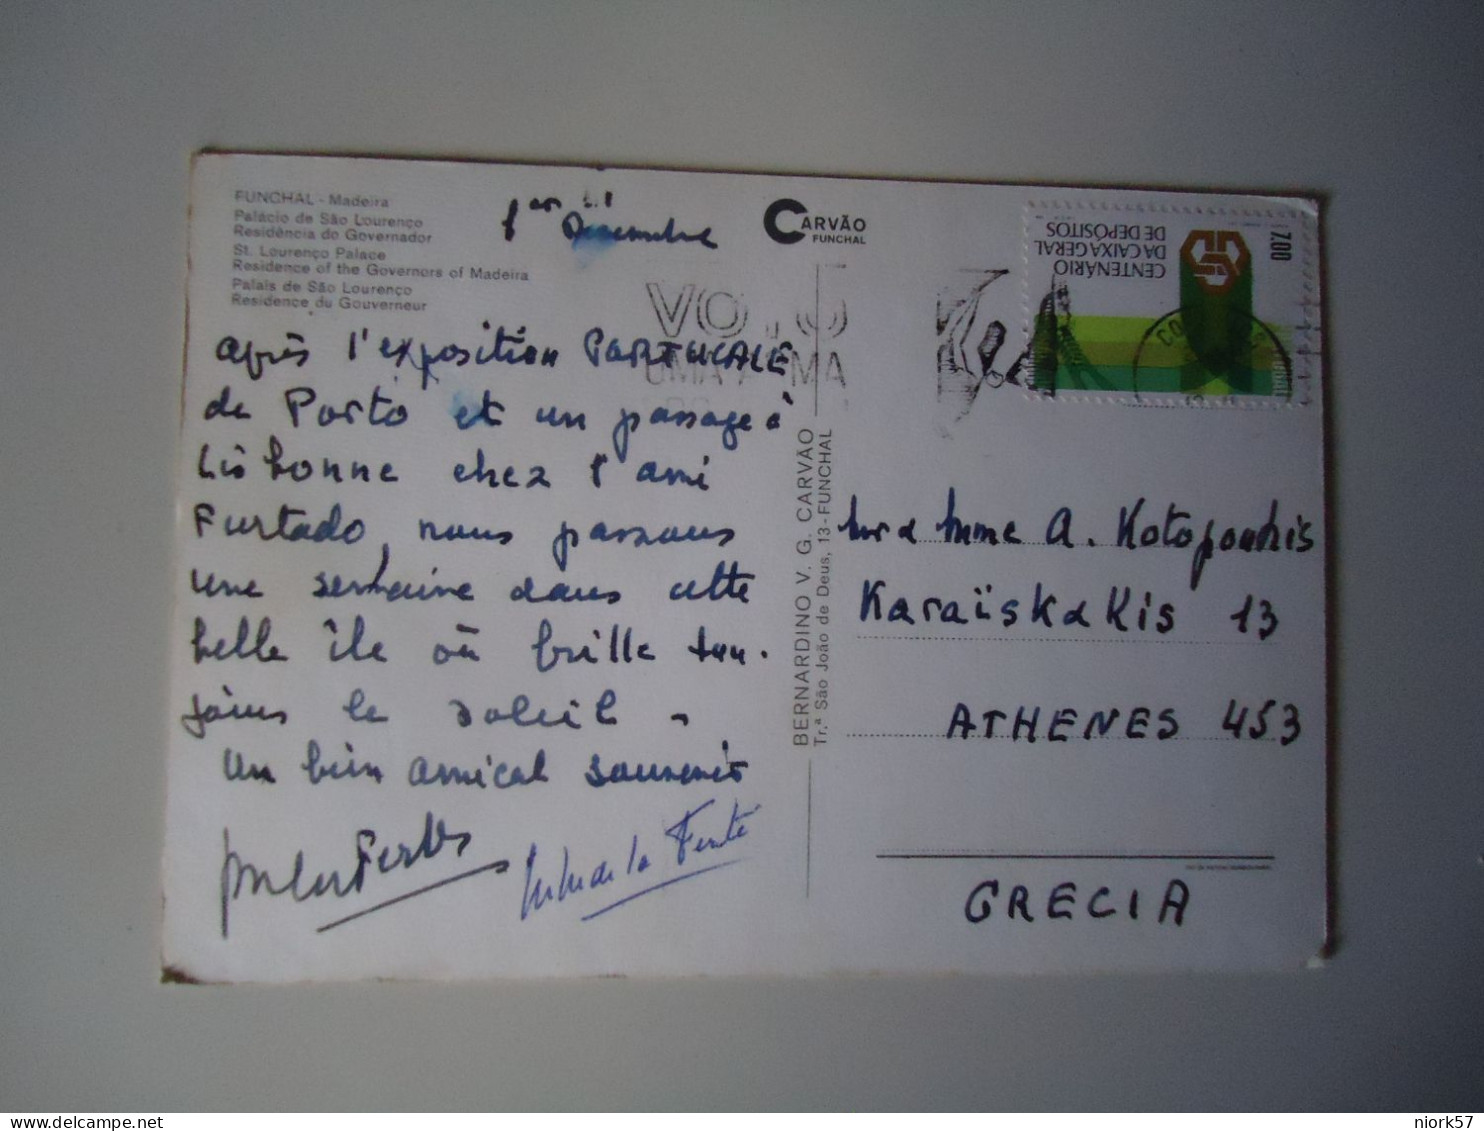 FUNCHAL - Madeira
Palácio de São Lourenço
Residência do Governador
St. Lourenço Palace
Residence of the Governors of Madeira
Palais de São Lourenço
Residence du Gouverneur
1er Décembre
après l'exposition PORTUCALE
de Porto et un passage à
Lisbonne chez l'ami
Furtado, nous passons
une semaine dans cette
belle île où brille tou-
jours le soleil -
Un bien amical souvenir
CARVÃO
FUNCHAL
BERNARDINO V. G. CARVÃO
Tr.ª São João de Deus, 13-FUNCHAL
VOTO
UMA ARMA
CENTENÁRIO
DA CAIXA GERAL
DE DEPÓSITOS
7.00
Mr & Mme A. Kotopoulis
Karaïskakis 13
ATHENES 453
GRECIA
niork57